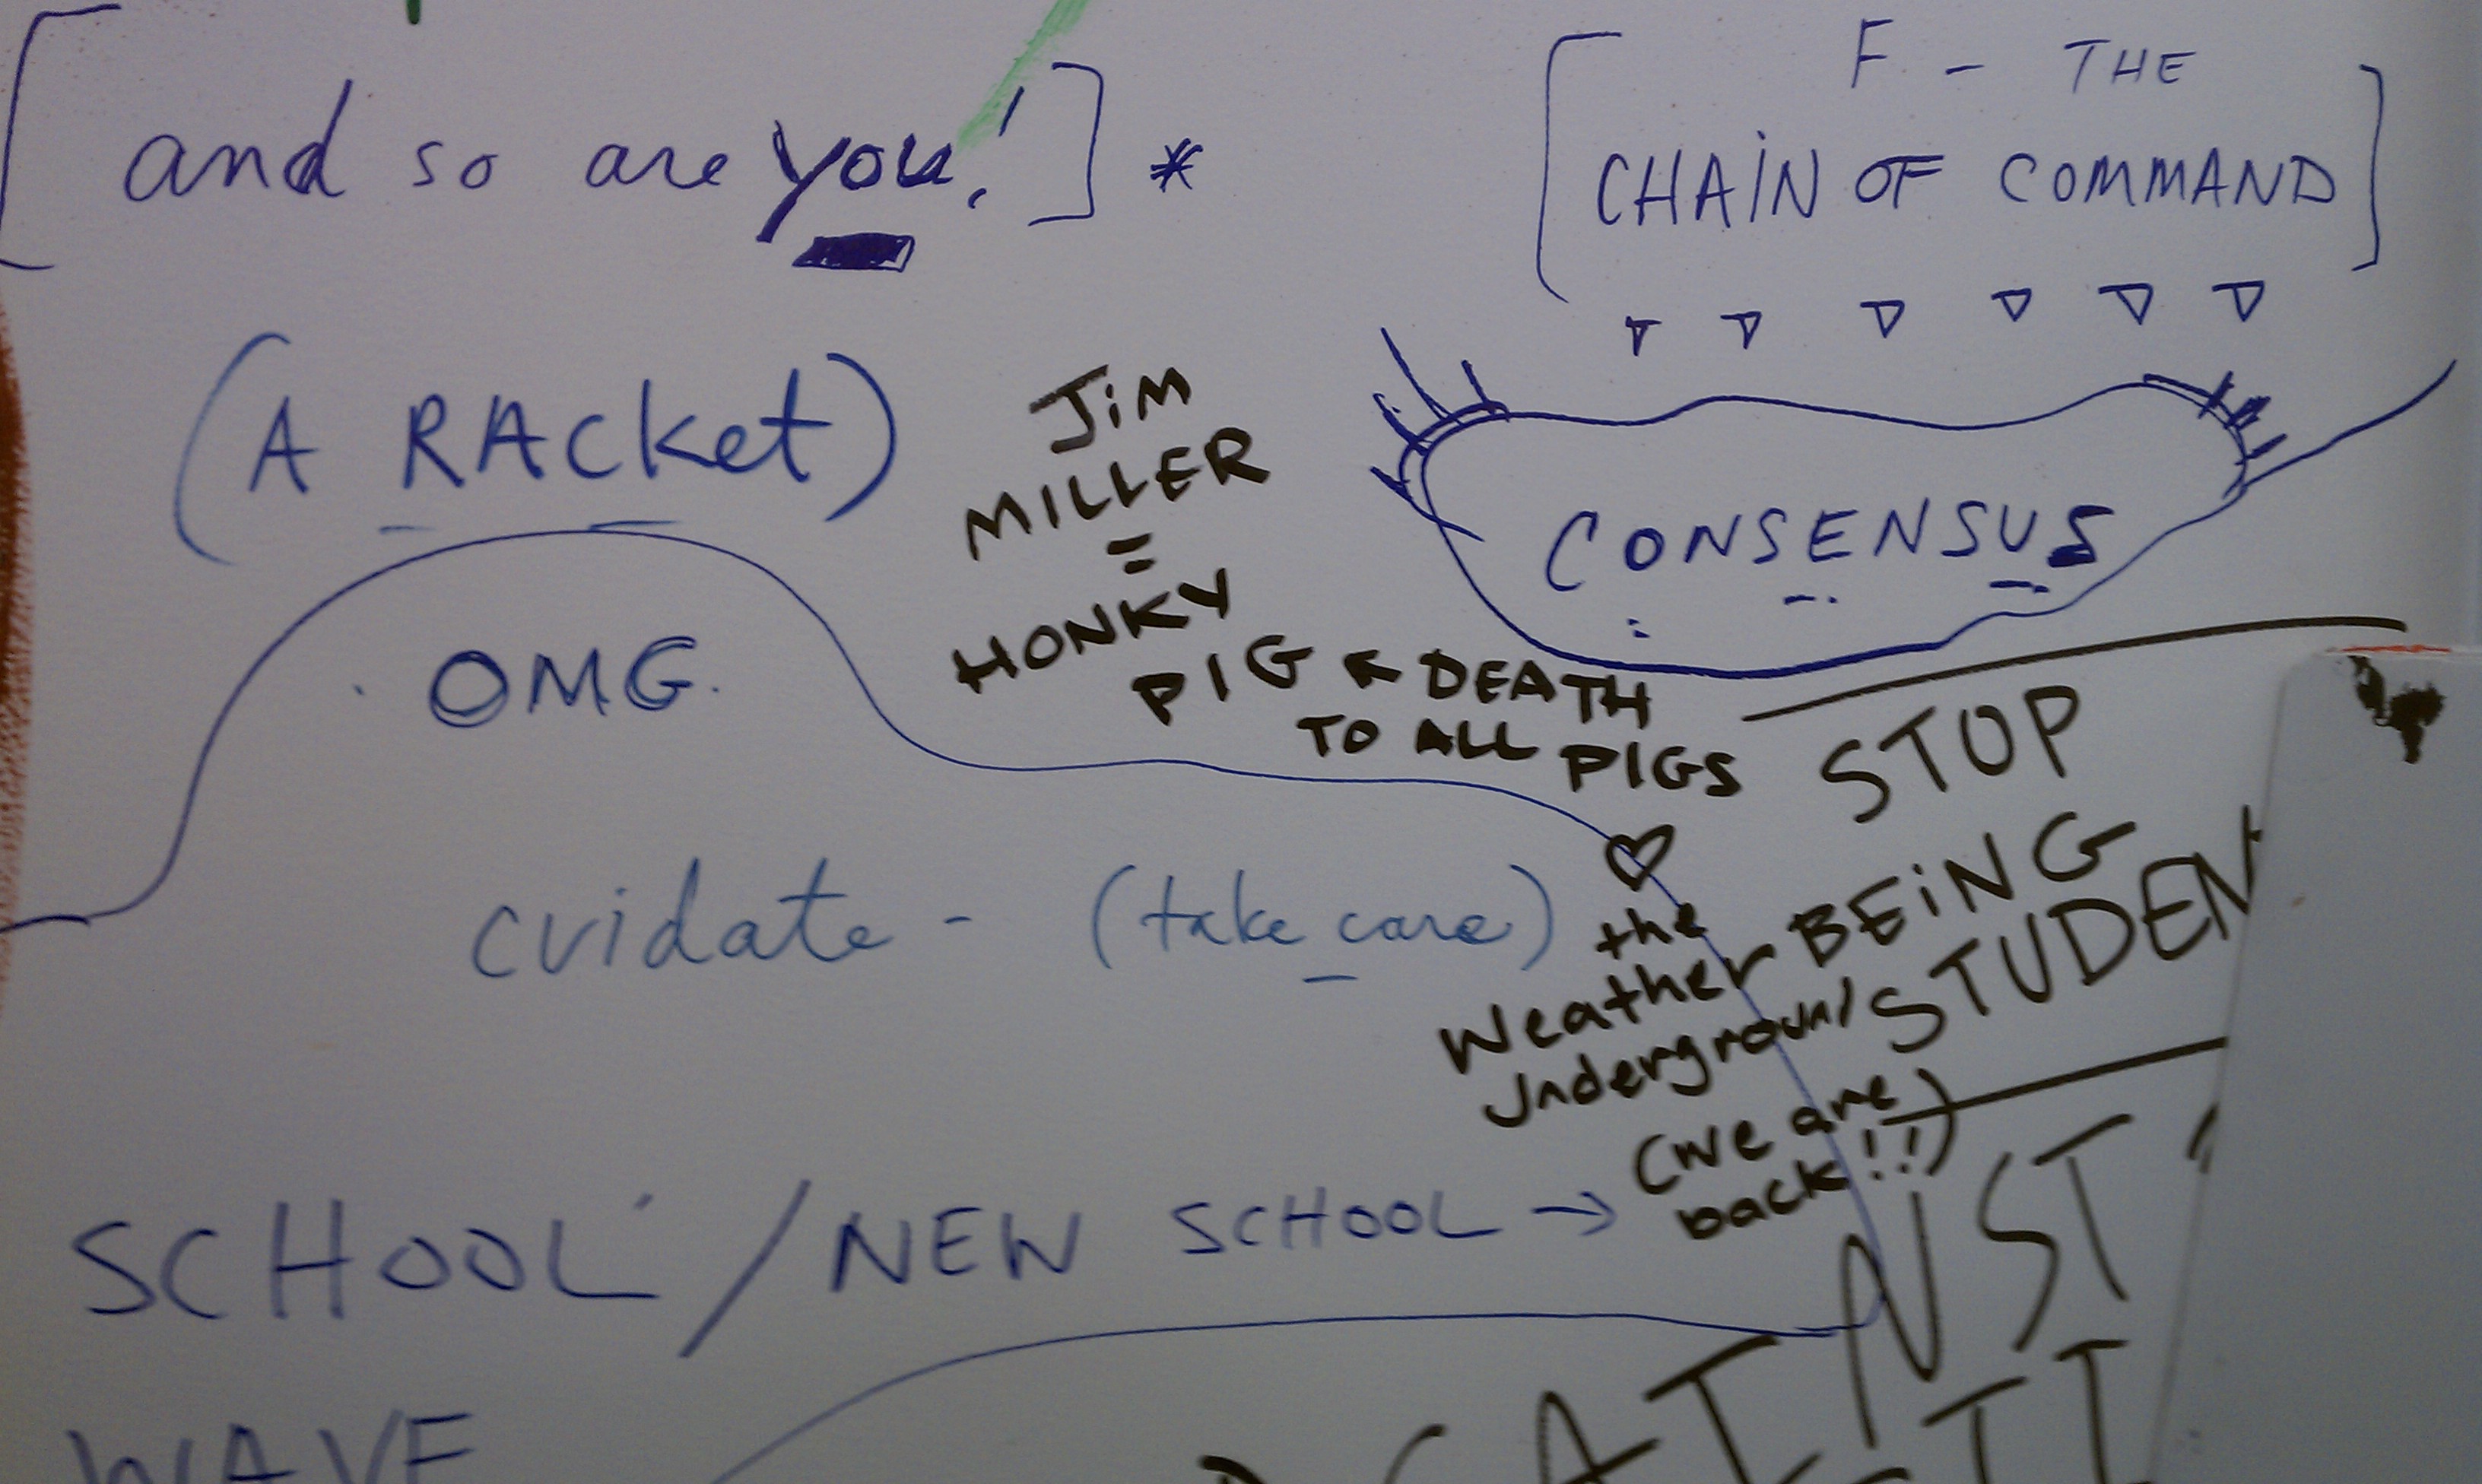 [and so are you!] *
[F - THE
CHAIN OF COMMAND]
(A RACket)
CONSENSUS
JiM
MILLER
=
HONKY
PIG ← DEATH
TO ALL
PIGS
OMG.
STOP
BEiNG
STUDEN
cuidate - (take care)
♡
the
Weather
Underground
(we are
back!!)
SCHOOL / NEW SCHOOL →
WAVE
NST